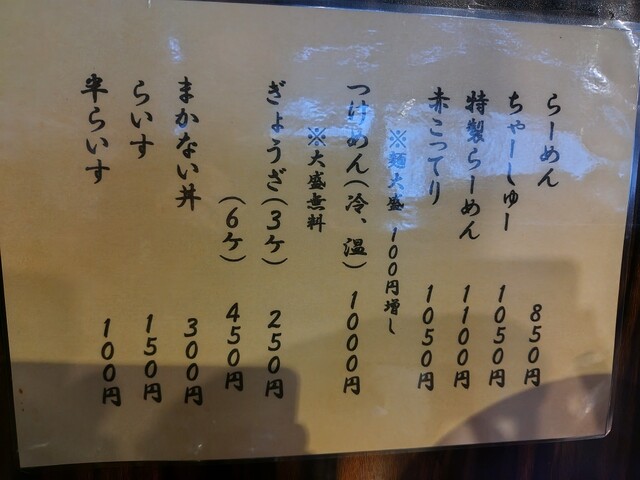 らーめん 850円
ちゃーしゅー 1050円
特製らーめん 1100円
赤こってり 1050円
※麺大盛 100円増し
つけめん(冷、温) 1000円
※大盛無料
ぎょうざ(3ケ) 250円
(6ケ) 450円
まかない丼 300円
らいす 150円
半らいす 100円